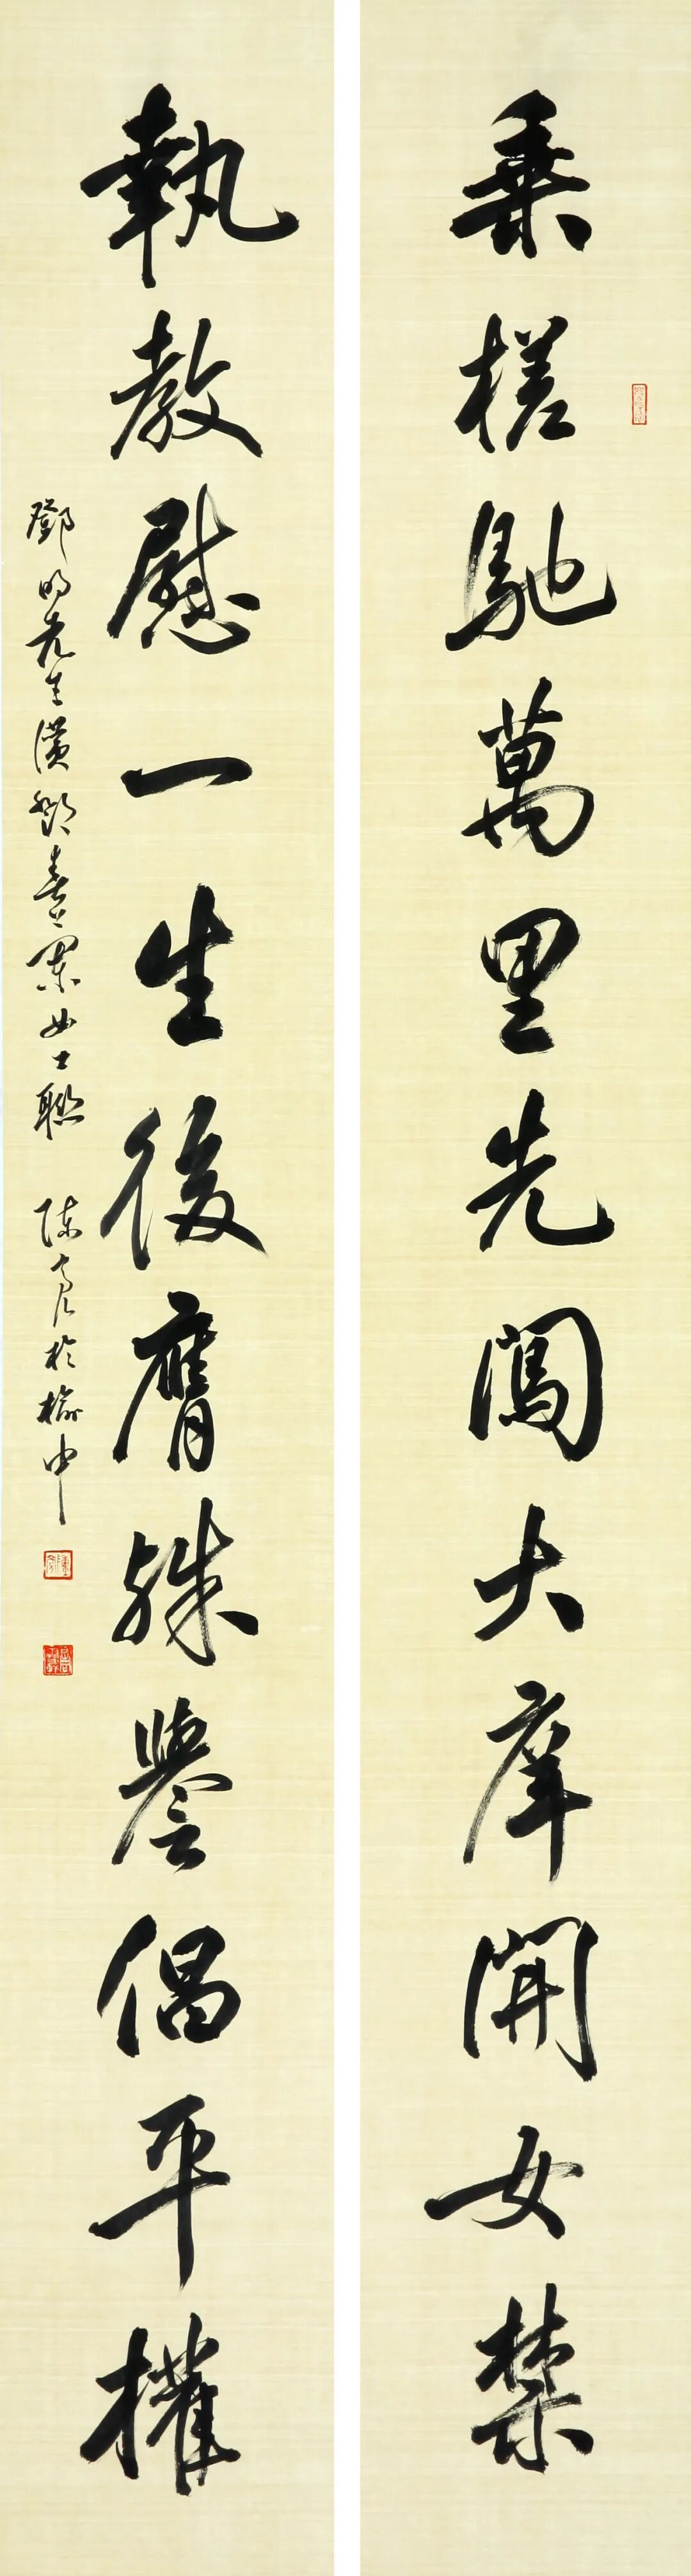 乘槎馳萬里先闖大庠開女禁
執教慰一生後膺殊譽倡平權
鄧明先生撰鄧春蘭女士聯 陳高於榆中